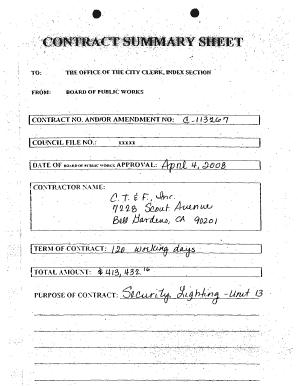 CONTRACT SUMMARY SHEET
TO: THE OFFICE OF THE CITY CLERK, INDEX SECTION
FROM: BOARD OF PUBLIC WORKS
CONTRACT NO. AND/OR AMENDMENT NO: C-113267
COUNCIL FILE NO.: xxxxx
DATE OF BOARD OF PUBLIC WORKS APPROVAL: April 4, 2008
CONTRACTOR NAME:
C. T. & F., Inc.
7228 Scout Avenue
Bell Gardens, CA 90201
TERM OF CONTRACT: 120 working days
TOTAL AMOUNT: $ 413,432.16
PURPOSE OF CONTRACT: Security Lighting - Unit 13